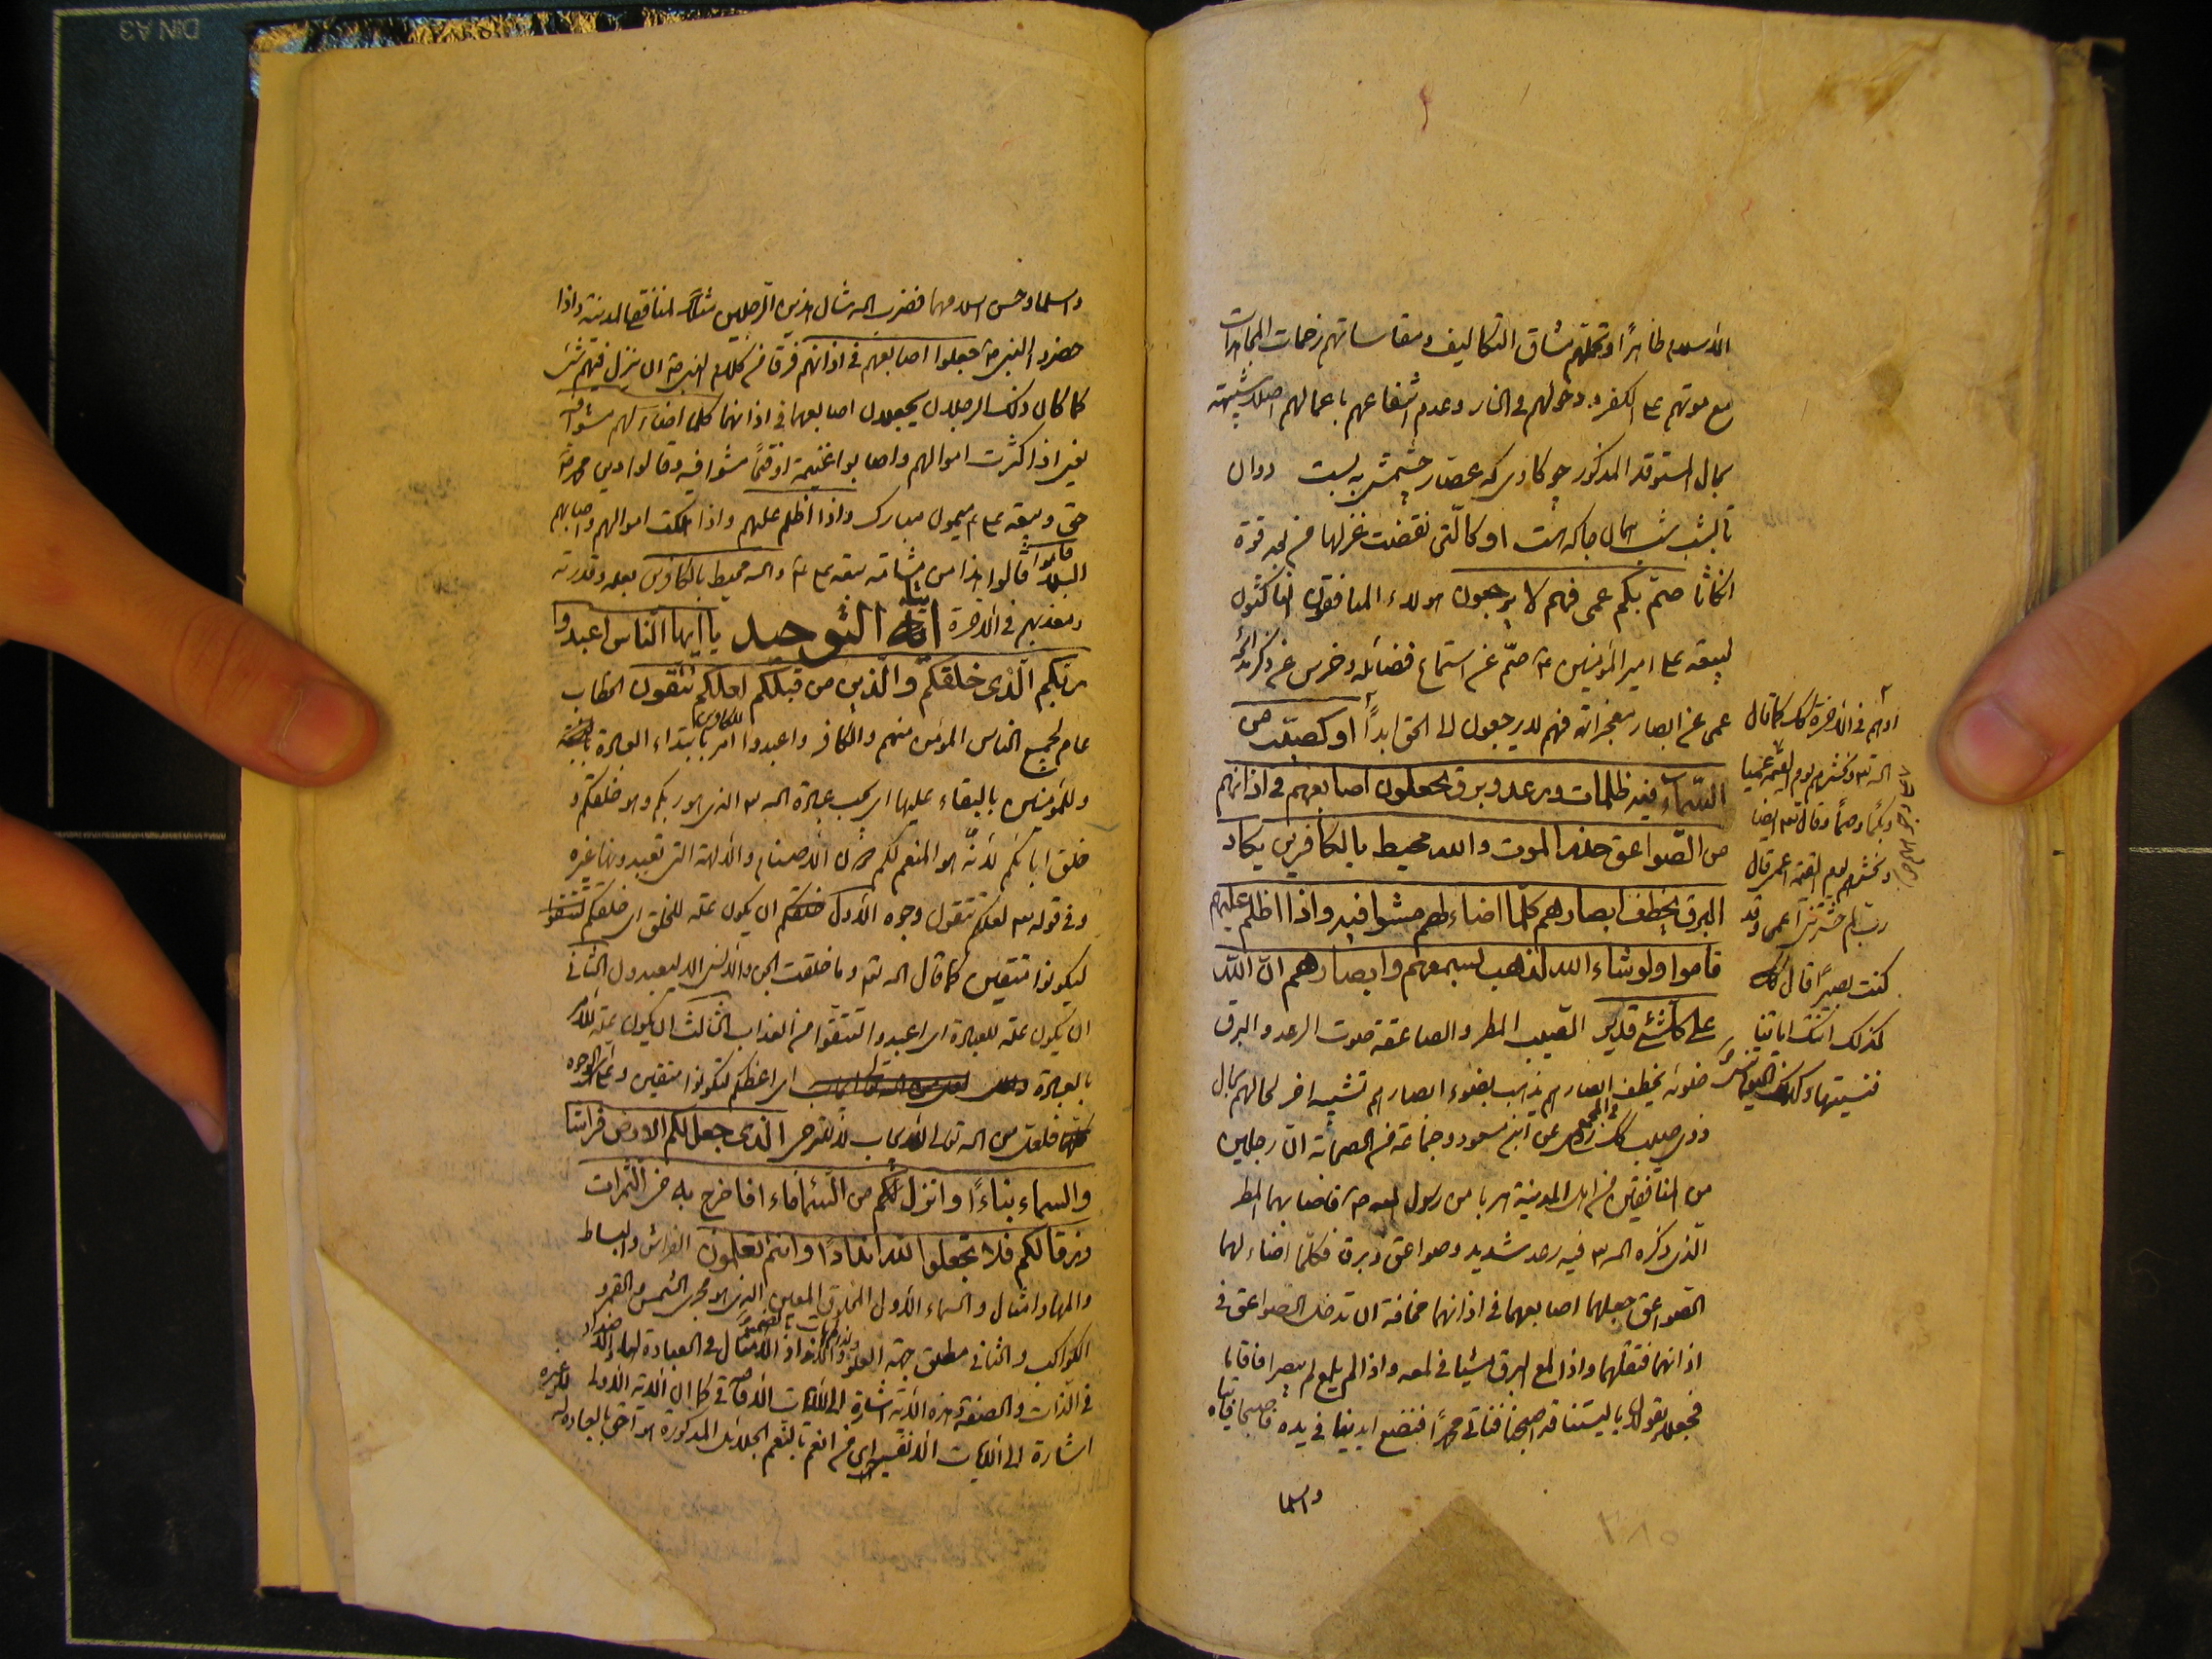 الاسلام ظاهرًا وتحملهم مشاق التكاليف ومقاساتهم زحمات المجاهدات
مع موتهم على الكفر ودخولهم في النار وعدم انتفاعهم باعمالهم اصلا شبيهة
بحال المستوقد المذكور چو كاوى كه عصار چشمش ببست دوان
تا بشب شب همان جا كه هست او كالتى نقضت غزلها من بعد قوة
انكاثا صمّ بكم عمى فهم لا يرجعون هولاء المنافقون الناكثون
لبيعة على امير المؤمنين ع صمّ عن استماع فضائله وخرس عن ذكر
عمى عن ابصار معجزاته فهم لا يرجعون الى الحق ابدًا او كصيّب من
السّماء فيه ظلمات ورعد وبرق يجعلون اصابعهم في اذانهم
من الصّواعق حذر الموت والله محيط بالكافرين يكاد
البرق يخطف ابصارهم كلّما اضاء لهم مشوا فيه واذا اظلم عليهم
قاموا ولو شاء الله لذهب بسمعهم وابصارهم انّ الله
على كل شئ قدير الصّيب المطر والصاعقة صوت الرعد والبرق
ضوئه يخطف ابصارهم يذهب بضوء ابصارهم تشبيه اخر لحالهم بحال
ذوى صيب في المجمع روى عن ابن مسعود وجماعة من الصحابة انّ رجلين
من المنافقين من اهل المدينة هربا من رسول الله ص فاصابهما المطر
الّذى ذكره الله تع فيه رعد شديد وصواعق وبرق فكلّما اضاء لهما
الصواعق جعلهما اصابعهما في اذانهما مخافة ان تدخل الصواعق في
اذانهما فتقتلهما واذا لمع البرق مشيا في لمعه واذا لم يلمع لم يبصرا فاقاما
فجعلا يقولان ياليتنا قد اصبحنا فناتى محمدًا فنضع ايدينا في يده فاصبحا فاتياه
واسلما
او هم في الاخرة كك كما قال
الله تع ونحشرهم يوم القيمة عميا
وبكمًا وصمًا وقال تع ايضا
ونحشره يوم القيمة اعمى قال
رب لم حشرتنى اعمى وقد
كنت بصيرًا قال
كذلك اتتك اياتنا
فنسيتها وكذلك اليوم تنسى
على وجوههم
واسلما وحسن اسلامهما فضرب الله شان هذين الرجلين مثلًا لمنافقى المدينة واذا
حضروا النبى ص جعلوا اصابعهم في اذانهم فرقا من كلام النبى ص ان ينزل فيهم شئ
كما كان ذلك الرجلان يجعلان اصابعهما في اذانهما كلما اضاء لهم مشوا فيه
يعنى اذا كثرت اموالهم واصابوا غنيمة او فتحًا مشوا فيه وقالوا دين محمد ص
حق وبيعة على ع ميمون مبارك واذا اظلم عليهم واذا هلكت اموالهم واصابهم
البلاء قاموا قالوا هذا من مشامة بيعة على ع والله محيط بالكافرين بعلمه وقدرته
ومعذبهم في الاخرة آية التّوحيد يا ايها النّاس اعبدوا
ربّكم الّذى خلقكم والّذين من قبلكم لعلكم تتّقون الخطاب
عام لجميع الناس المؤمن منهم والكافر واعبدوا امر للكافرين بابتداء العبادة
وللمؤمنين بالبقاء عليها اى يجب عبادة الله تع الذى هو ربكم وهو خلقكم و
خلق اباءكم لانّه هو المنعم لكم دون الاصنام والالهة التى تعبدونها غيره
وفى قوله تع لعلكم تتقون وجوه الاول ان يكون علة للخلق اى خلقكم
ليكونوا متقين كما قال الله تع وما خلقت الجن والانس الا ليعبدون الثانى
ان يكون علة للعبادة اى اعبدوا لتتقوا من العذاب الثالث ان يكون علة للامر
بالعبادة اى اعظكم لتكونوا متقين وعلى الوجوه
فلعل من الله تعالى للايجاب لا للترجى الّذى جعل لكم الارض فراشا
والسماء بناءًا وانزل لكم من السّماء ماءا فاخرج به من الثّمرات
رزقا لكم فلا تجعلوا لله اندادًا وانتم تعلمون الفراش والبساط
والمهاد امثال والسماء الاول المخلوق المعين الذى هو مجرى الشمس والقمر و
الكواكب والثانى مطلق جهة العلو والانداد الامثال في العبادة
في الذات والصفة وهذه الاية اشارة الى الايات الافاقى كما ان الاية الاولى
اشارة الى الايات الانفسى اى من انعم بالنعم الجلائل المذكورة هو احق بالعبادة